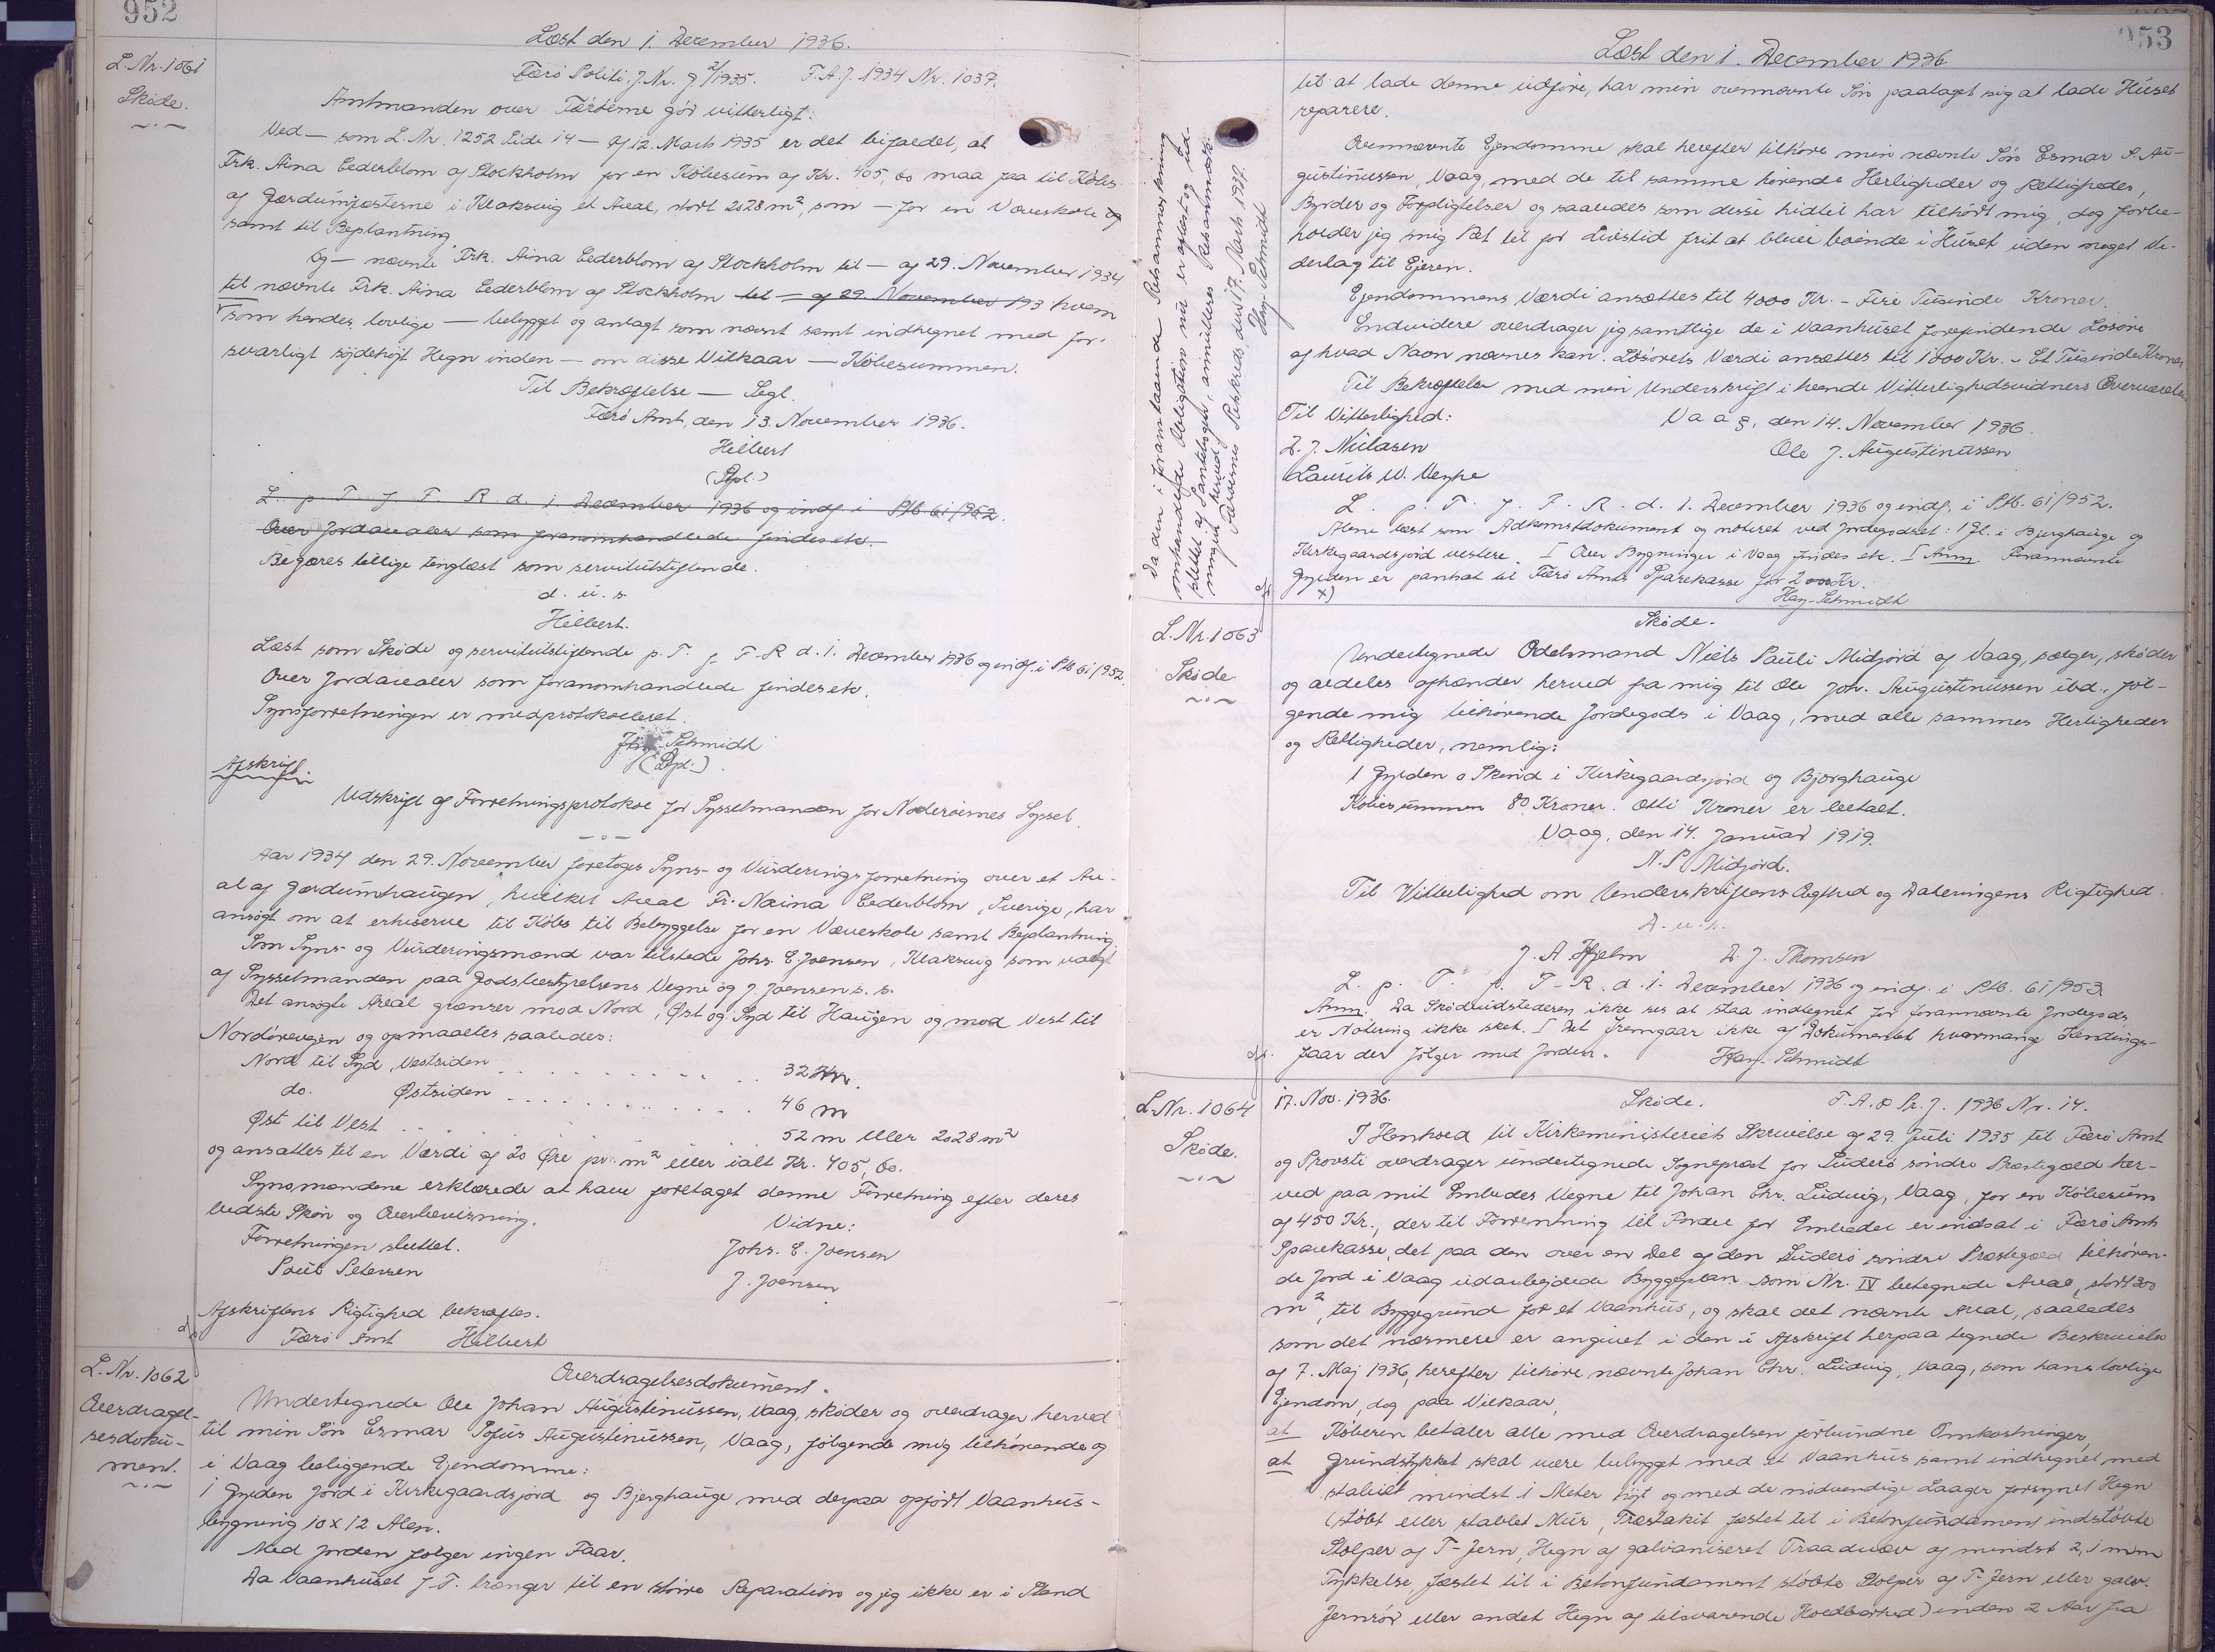 952
Læst den 1. December 1936.
L.Nr. 1061
Skøde.
Færø Politi. J.Nr. 9 2/1935. F.A.J. 1934 Nr. 1037.
Amtmanden over Færøerne gör vitterligt:
Ved — som L.Nr. 1252 Side 14 — af 12. Marts 1935 er det bifaldet, at
Frk. Aina Cederblom af Stockholm for en Købesum af Kr. 405,60 maa faa til Købs
af Gærdumfæsterne i Klaksvig et Areal, stort 2028 m², som — for en Væveskole og
samt til Beplantning.
Og — nævnte Frk. Aina Cederblom af Stockholm til — af 29. November 1934
til nævnte Frk. Aina Cederblom af Stockholm til — af 29. November 193 hvem
som hendes lovlige — bebygget og anlagt som nævnt samt indhegnet med for-
svarligt söjdehøjt Hegn inden — om disse Vilkaar — Købesummen.
Til Bekræftelse — Segl.
Færø Amt, den 13. November 1936.
Hilbert
L. p. T. f. F. R. d. 1. December 1936 og indf. i Ptb. 61/952.
Over Jordarealer som foranomhandlede findes etc.
Begæres tillige tinglæst som servitutstiftende.
d. u. s.
Hilbert.
Læst som Skøde og servitutstiftende p. T. f. F. R. d. 1. December 1936 og indf. i Ptb. 61/952.
Over Jordarealer som foranomhandlede findes etc.
Synsforretningen er medprotokolleret.
Hay-Schmidt
Afskrift.
Udskrift af Forretningsprotokol for Sysselmanden for Norderøernes Syssel.
Aar 1934 den 29. November foretoges Syns- og Vurderingsforretning over et Are-
al af Gærdumhaugen, hvilket Areal Fr. Naina Cederblom, Sverige, har
ansøgt om at erhverve til Købs til Bebyggelse for en Væveskole samt Beplantning.
Som Syns- og Vurderingsmænd var tilstede Johs. E. Joensen, Klaksvig som valgt
af Sysselmanden paa Godsbestyrelsens Vegne og J. Joensen s. s.
Det ansøgte Areal grænser mod Nord, Øst og Syd til Haugen og mod Vest til
Nordörevegen og opmaaltes saaledes:
Nord til Syd, Vestsiden . . . . . . . . . . 32 m.
do. Østsiden . . . . . . . . . . 46 m
Øst til Vest . . . . . . . . . . 52 m eller 2028 m²
og ansattes til en Værdi af 20 Øre pr. m² eller ialt Kr. 405,60.
Synsmændene erklærede at have foretaget denne Forretning efter deres
bedste Skøn og Overbevisning.
Vidne:
Forretningen sluttet.
Johs. E. Joensen
Poul Petersen
J. Joensen
Afskriftens Rigtighed bekræftes.
Færø Amt Hilbert
L.Nr. 1062
Overdragel-
sesdoku-
ment.
Overdragelsesdokument.
Undertegnede Ole Johan Augustinussen, Vaag, skøder og overdrager herved
til min Søn Esmar Sofus Augustinussen, Vaag, følgende mig tilhørende og
i Vaag beliggende Ejendomme:
1 Gylden Jord i Kirkegaardsjord og Bjerghauge med derpaa opført Vaanhus-
bygning 10 x 12 Alen.
Med Jorden følger ingen Faar.
Da Vaanhuset f. T. trænger til en större Reparation og jeg ikke er i Stand
953
Læst den 1. December 1936
til at lade denne udføre, har min ovennævnte Søn paataget sig at lade Huset
reparere.
Ovennævnte Ejendomme skal herefter tilhøre min nævnte Søn Esmar S. Au-
gustinussen, Vaag, med de til samme hørende Herligheder og Rettigheder,
Byrder og Forpligtelser og saaledes som disse hidtil har tilhørt mig, dog forbe-
holder jeg mig Ret til for Livstid frit at blive boende i Huset uden noget Ve-
derlag til Ejeren.
Ejendommens Værdi ansættes til 4000 Kr. - Fire Tusinde Kroner.
Endvidere overdrager jeg samtlige de i Vaanhuset forefindende Løsøre
af hvad Navn nævnes kan. Løsørets Værdi ansættes til 1000 Kr. - Et Tusinde Kroner
Til Bekræftelse med min Underskrift i hænde Vitterlighedsvidners Overværelse.
Til Vitterlighed:
Vaag, den 14. November 1936.
D. J. Nielasen
Ole J. Augustinussen
Laurits W. Vesspe
L. p. T. f. F. R. d. 1. December 1936 og indf. i Ptb. 61/952.
Alene læst som Adkomstdokument og noteret ved Jordegodset: 1 Gl. i Bjerghauge og
Kirkegaardsjord vestere. I Over Bygninger i Vaag findes etc. I Anm. Forannævnte
Gylden er pantsat til Færø Amts Sparekasse for 2000 Kr.
x)
Hay-Schmidt
Da den i foranstaaende Retsanmærkning
omhandlede Obligation nu er aflyst og ud-
slettet af Pantebogen, annulleres Retsanmærk-
ningen herved.
Færøernes Retskreds, den 17. Marts 1937.
Hay-Schmidt
L.Nr. 1063
Skøde.
Skøde.
Undertegnede Odelsmand Niels Pauli Midjord af Vaag, sælger, skøder
og aldeles afhænder herved fra mig til Ole Joh. Augustinussen ibd., føl-
gende mig tilhørende Jordegods i Vaag, med alle sammes Herligheder
og Rettigheder, nemlig:
1 Gylden 0 Skind i Kirkegaardsjord og Bjorghauge
Købesummen 80 Kroner. Otti Kroner er betalt.
Vaag, den 14. Januar 1919.
N. P. Midjord.
Til Vitterlighed om Underskriftens Ægthed og Dateringens Rigtighed.
D. u. s.
J. A. Hjelm D. J. Thomsen
L. p. T. f. F-R. d. 1. December 1936 og indf. i Ptb. 61/953.
Anm. Da Skødeudstederen ikke ses at staa indtegnet for forannævnte Jordegods
er Notering ikke sket. I Det fremgaar ikke af Dokumentet hvormange Hendings-
faar der følger med Jorden.
Hay-Schmidt
L.Nr. 1064
Skøde.
17. Nov. 1936. Skøde. F.A. & Pr. J. 1936 Nr. 14.
I Henhold til Kirkeministeriets Skrivelse af 29. Juli 1935 til Færø Amt
og Provsti overdrager undertegnede Sognepræst for Suderø søndre Præstegæld her-
ved paa mit Embedes Vegne til Johan Chr. Ludvig, Vaag, for en Købesum
af 450 Kr., der til Forrentning til Fordel for Embedet er indsat i Færø Amts
Sparekasse, det paa den over en Del af den Suderø søndre Præstegæld tilhøren-
de Jord i Vaag udarbejdede Byggeplan som Nr. IV betegnede Areal, stort 300
m², til Byggegrund for et Vaanhus, og skal det nævnte Areal, saaledes
som det nærmere er angivet i den i Afskrift herpaa tegnede Beskrivelse
af 7. Maj 1936, herefter tilhøre nævnte Johan Chr. Ludvig, Vaag, som hans lovlige
Ejendom, dog paa Vilkaar,
at Køberen betaler alle med Overdragelsen forbundne Omkostninger,
at Grundstykket skal være bebygget med et Vaanhus samt indhegnet med
stabilt mindst 1 Meter højt og med de nødvendige Laager forsynet Hegn
(støbt eller stablet Mur, Træstakit fæstet til i Betonfundament indstøbte
Stolper af T-Jern, Hegn af galvaniseret Traadvæv af mindst 2,1 mm
Tykkelse, fæstet til i Betonfundament støbte Stolper af T-Jern eller galv.
Jernrør eller andet Hegn af tilsvarende Holdbarhed) inden 2 Aar fra